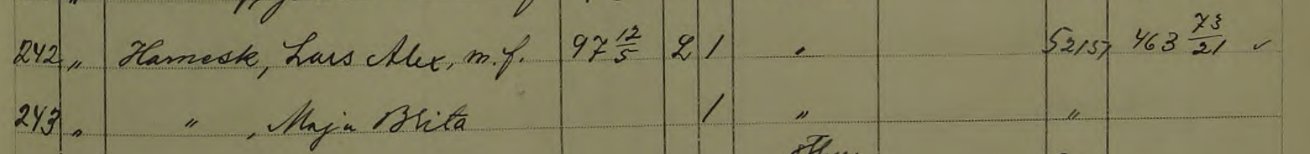 242 " Harnesk, Lars Alex, m.f. 97 12/5 L 1 " 52157 463 73/21 ✓
243 " " , Maja Brita 1 " "